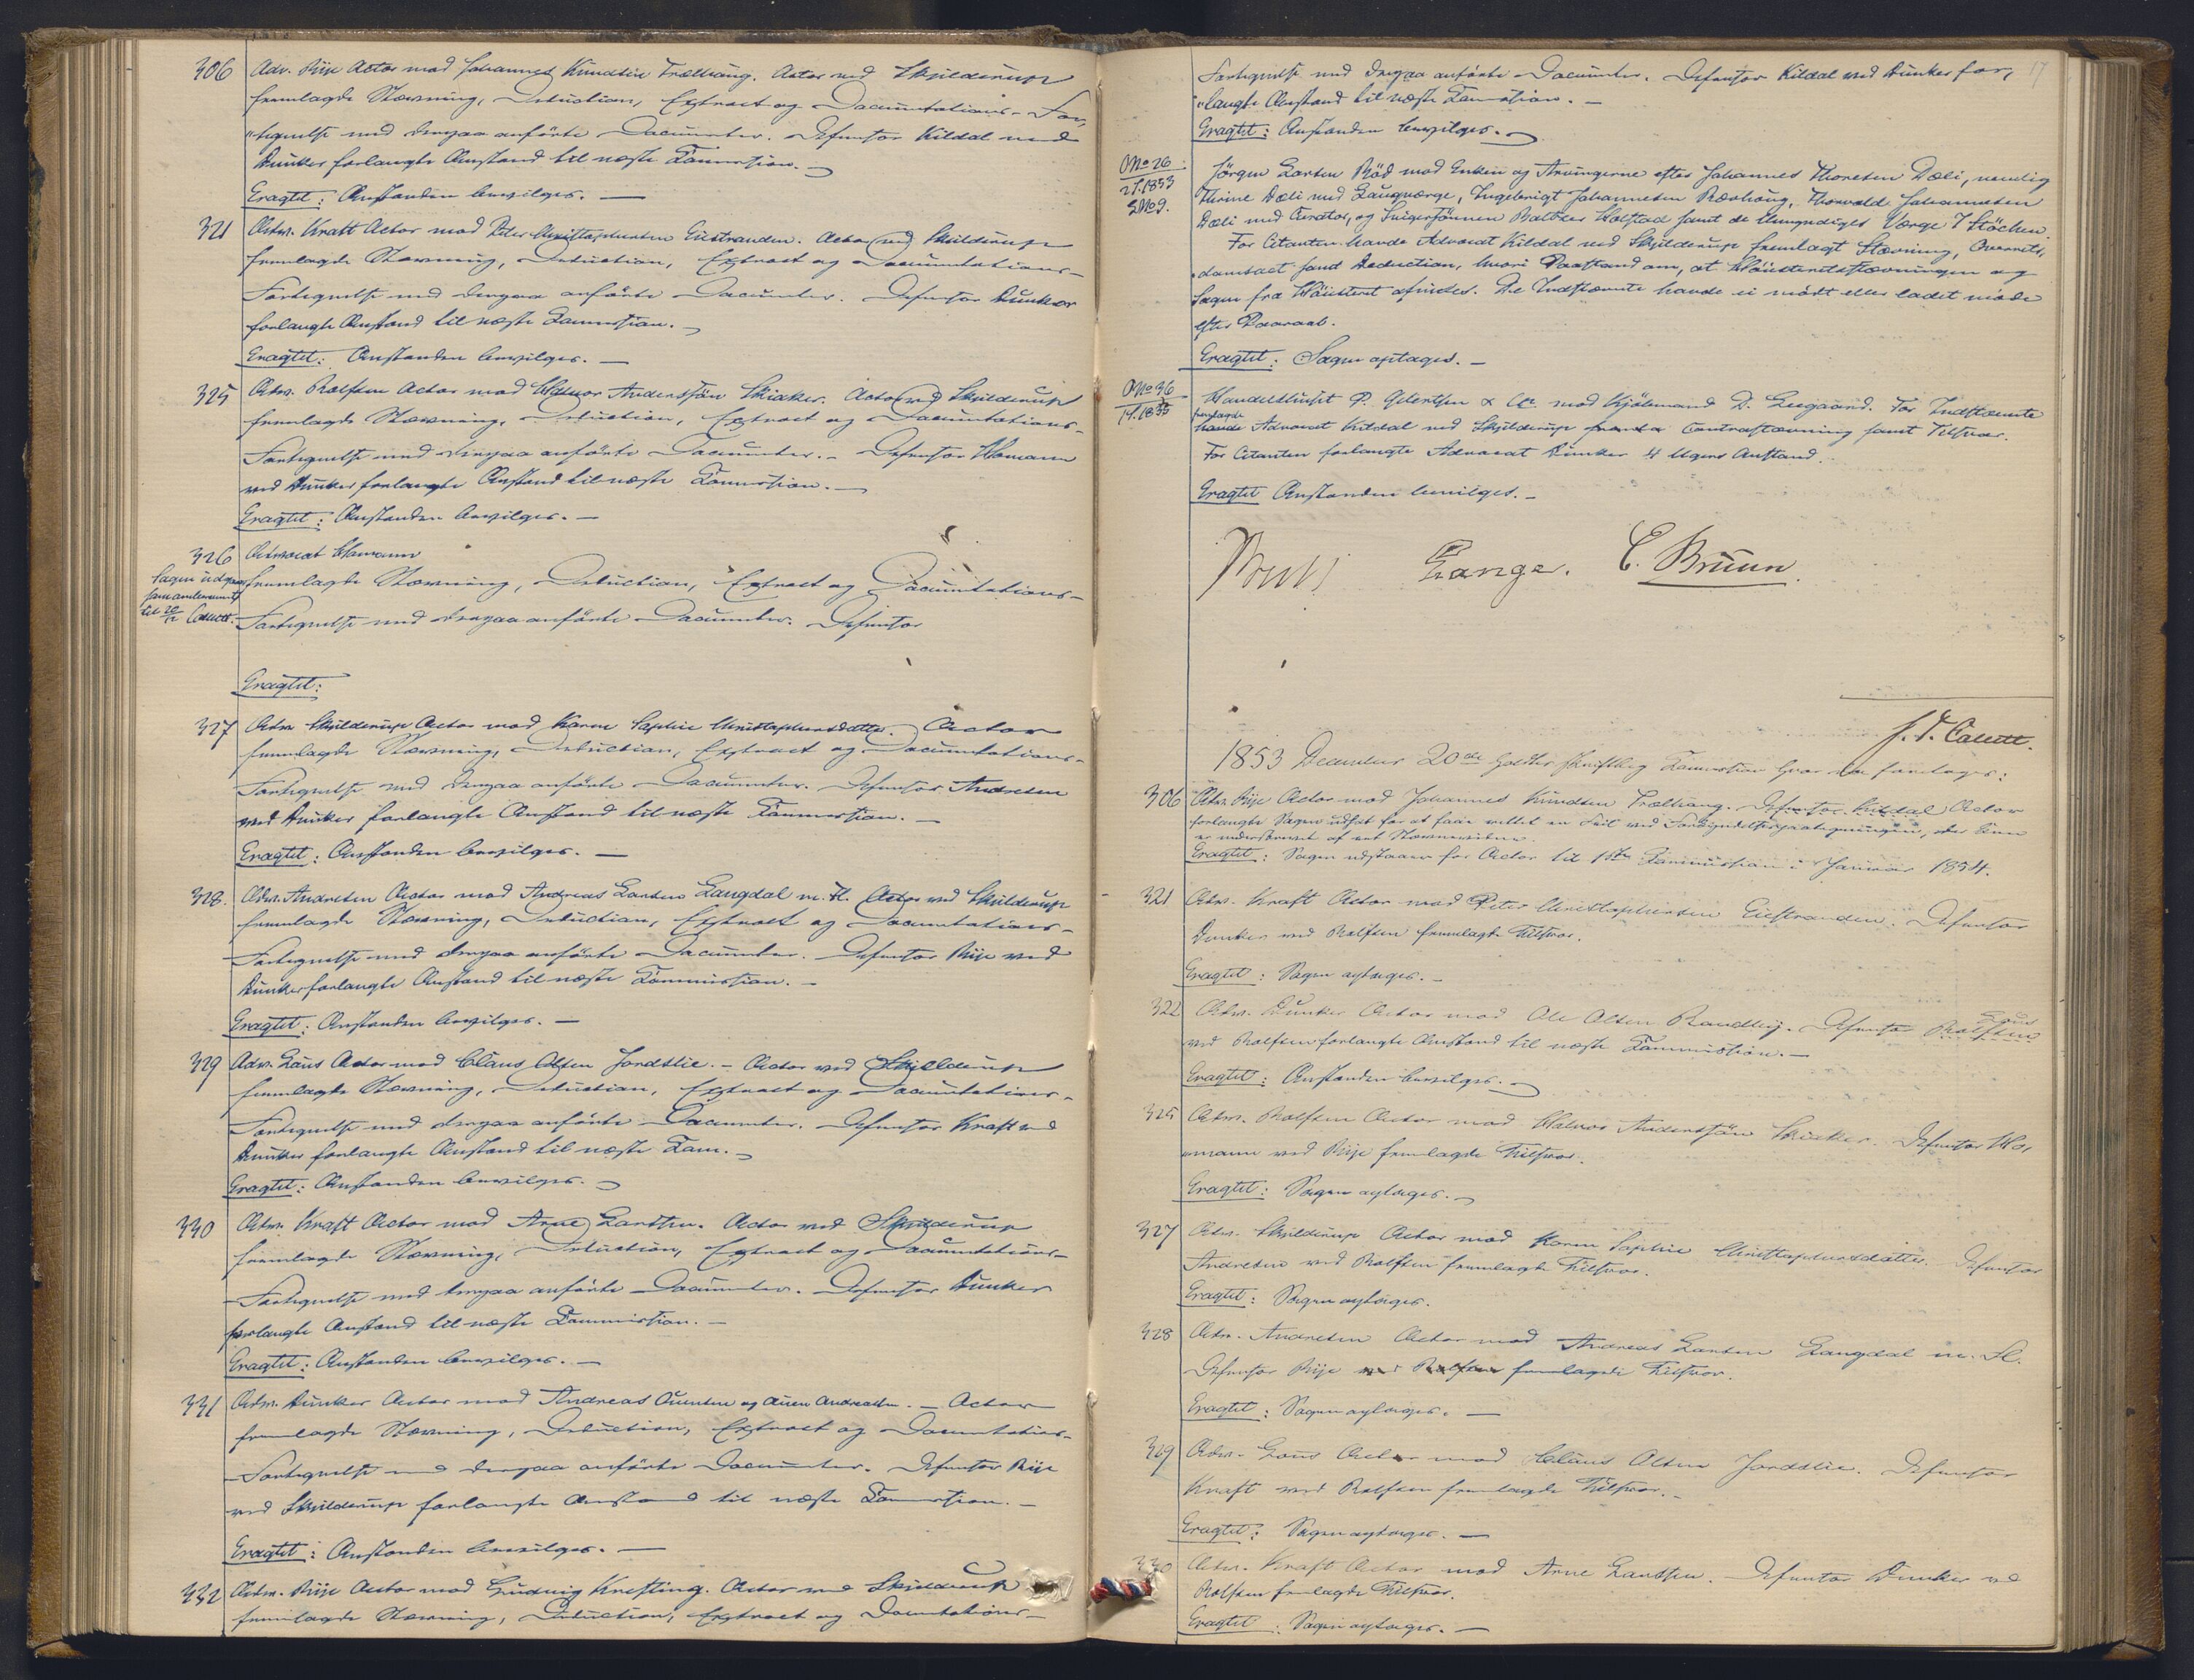 306 Adv. Rije Actor mod Johannes Knudsen Trælhaug. Actor ved Skjilderup
fremlagde Stævning, Deduction, Extract og Documentations-For„
„tegnelse med derpaa anførte Documenter. Defensor Kildal ved
Dunker forlangte Anstand til næste Commission. —
Eragtet: Anstanden bevilges. —
321 Adv. Kraft Actor mod Peter Christophersen Eiestranden. Actor ved Skjilderup
fremlagde Stævning, Deduction, Extract og Documentations-
Fortegnelse med derpaa anførte Documenter. Defensor Dunker
forlangte Anstand til næste Commission. —
Eragtet: Anstanden bevilges. —
325 Adv. Rolfsen Actor mod Halvor Anderssøn Skiaker. Actor ved Skjilderup
fremlagde Stævning, Deduction, Extract og Documentations-
Fortegnelse med derpaa anførte Documenter. — Defensor Homann
ved Dunker forlangte Anstand til næste Commission. —
Eragtet: Anstanden bevilges. —
326 Advocat Homann
Sagen udgaaer
fremlagde Stævning, Deduction, Extract og Documentations-
til 20/12 Calvett.
Fortegnelse med derpaa anførte Documenter. Defensor
Eragtet:
327 Adv. Skjilderup Actor mod Karen Sophie Christophersdatter. Actor
fremlagde Stævning, Deduction, Extract og Documentations-
Fortegnelse med derpaa anførte Documenter. Defensor Andresen
ved Dunker forlangte Anstand til næste Commission. —
Eragtet: Anstanden bevilges. —
328. Adv. Andresen Actor mod Andreas Larsen Langdal m. Fl. Actor ved Skjilderup
fremlagde Stævning, Deduction, Extract og Documentations-
Fortegnelse med derpaa anførte Documenter. Defensor Rije ved
Dunker forlangte Anstand til næste Commission. —
Eragtet: Anstanden bevilges. —
329 Adv. Lous Actor mod Claus Olsen Jordslie. — Actor ved Skjelderup
fremlagde Stævning, Deduction, Extract og Documentations-
Fortegnelse med derpaa anførte Documenter. Defensor Kraft ved
Dunker forlangte Anstand til næste Com. —
Eragtet: Anstanden bevilges. —
330 Adv. Kraft Actor mod Arne Larssen. Actor ved Skjilderup
fremlagde Stævning, Deduction, Extract og Documentations-
Fortegnelse med derpaa anførte Documenter. Defensor Dunker
forlangte Anstand til næste Commission. —
Eragtet: Anstanden bevilges. —
331 Adv. Dunker Actor mod Andreas Auensen og Auen Andreassen. — Actor
fremlagde Stævning, Deduction, Extract og Documentations-
Fortegnelse med derpaa anførte Documenter. Defensor Rije
ved Skjilderup forlangte Anstand til næste Commission. —
Eragtet: Anstanden bevilges. —
332 Adv. Rije Actor mod Ludvig Krefting. Actor ved Skjilderup
fremlagde Stævning, Deduction, Extract og Documentations-
17
Fortegnelse med derpaa anførte Documenter. Defensor Kildal ved Dunker for„
„langte Anstand til næste Commission. —
Eragtet: Anstanden bevilges. —
No 26
2 S. 1853
L No 9.
Jørgen Larsen Rød mod Enken og Arvingerne efter Johannes Thoresen Dæli, nemlig
Thrine Dæli med Laugværge, Ingebrigt Johannesen Rævhoug, Thorvald Johannesen
Dæli med Curator, og Svigersønnen Balzer Holstad samt de Umyndiges Værge I Støchen
For Citanten havde Advocat Kildal ved Skjilderup fremlagt Stævning, Overrets„
„domsact samt Deduction, hvori Paastand om, at Høiesteretsstævningen og
Sagen fra Høiesteret afvises. De Indstævnte havde ei mødt eller ladet møde
efter Paaraab.
Eragtet: Sagen optages. —
No 36
1 S. 1853
Handelshuset P. Gelertsen & Co. mod Kjøbmand D. Leegaard. For Indstævnte
fremlagde
havde Advocat Kildal ved Skjilderup Contrastævning samt Tilsvar.
For Citanten forlangte Advocat Dunker 4 Ugers Anstand.
Eragtet Anstanden bevilges. —
Lange. C. Bruun.
J. P. Calvett.
1853 December 20de holdtes skriftlig Commission hvor da foretages:
306 Adv. Rije Actor mod Johannes Knudsen Trælhaug. Defensor Kildal Actor
forlangte Sagen udsat for at faae rettet en Feil ved Forkyndelsespaategningen, der kun
er underskrevet af eet Stævnevidne.
Eragtet: Sagen udstaaer for Actor til 1ste Commission i Januar 1854.
321 Adv. Kraft Actor mod Peter Christophersen Eiestranden. Defensor
Dunker ved Rolfsen fremlagde Tilsvar.
Eragtet: Sagen optages. —
322 Adv. Dunker Actor mod Ole Olsen Randby. Defensor Rolfsen Lous
ved Rolfsen forlangte Anstand til næste Commission. —
Eragtet: Anstanden bevilges. —
325 Adv. Rolfsen Actor mod Halvor Anderssøn Skiaker. Defensor Ho„
„mann ved Rije fremlagde Tilsvar.
Eragtet: Sagen optages. —
327 Adv. Skjilderup Actor mod Karen Sophie Christophersdatter. Defensor
Andresen ved Rolfsen fremlagde Tilsvar.
Eragtet: Sagen optages.
328 Adv. Andresen Actor mod Andreas Larsen Langdal m. Fl.
Defensor Rije ved Rolfsen fremlagde Tilsvar.
Eragtet: Sagen optages. —
329 Adv. Lous Actor mod Claus Olsen Jordslie. Defensor
Kraft ved Rolfsen fremlagde Tilsvar. —
Eragtet: Sagen optages. —
330 Adv. Kraft Actor mod Arne Larssen. Defensor Dunker ved
Rolfsen fremlagde Tilsvar.
Eragtet: Sagen optages. —